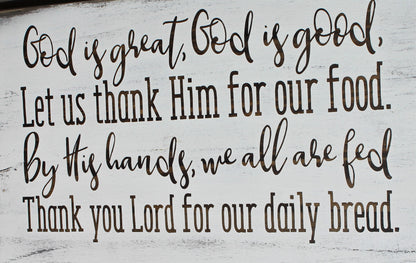 God is great, God is good,
Let us thank Him for our food.
By His hands, we all are fed
Thank you Lord for our daily bread.